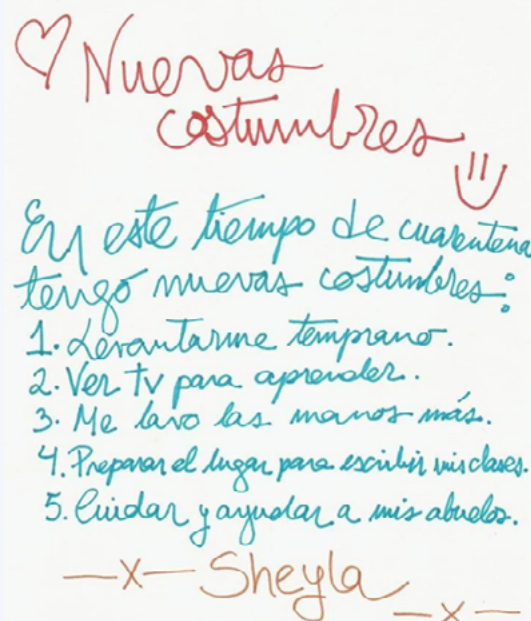 Nuevas
costumbres
En este tiempo de cuarentena
tengo nuevas costumbres:
1. Levantarme temprano.
2. Ver tv para aprender.
3. Me lavo las manos más.
4. Preparar el lugar para escribir mis clases.
5. Cuidar y ayudar a mis abuelos.
—x— Sheyla
—x—